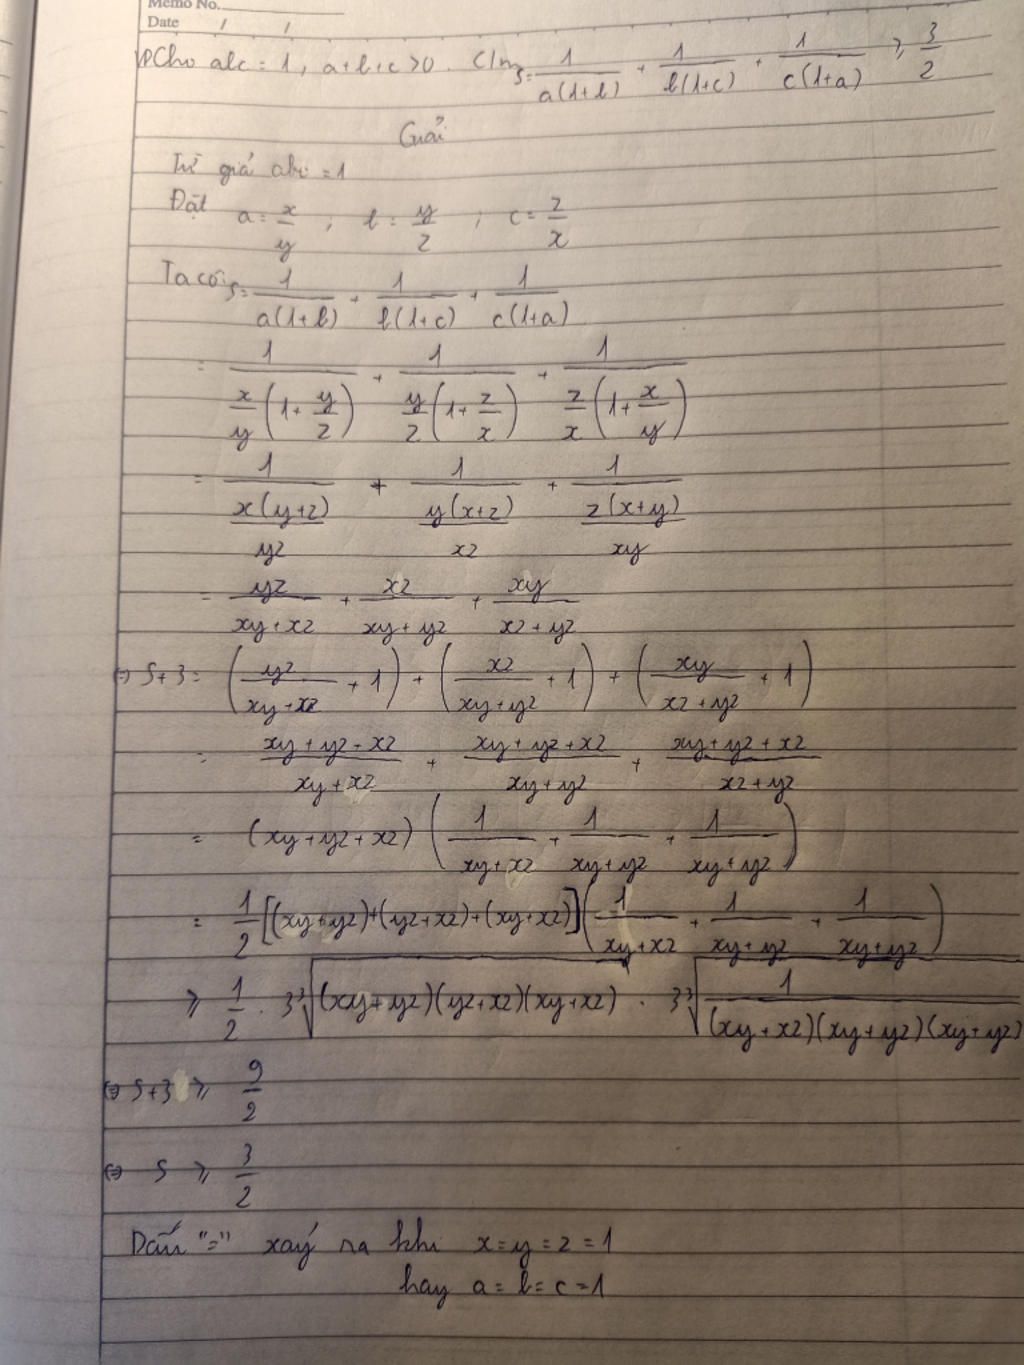 Memo No.
Date / /
Cho abc = 1, a+b+c>0. C/m S = 1/(a(1+b)) + 1/(b(1+c)) + 1/(c(1+a)) ⩾ 3/2
Giải
Từ giả abc = 1
Đặt a = x/y ; b = y/z ; c = z/x
Ta có: S = 1/(a(1+b)) + 1/(b(1+c)) + 1/(c(1+a))
= 1/(x/y (1 + y/z)) + 1/(y/z (1 + z/x)) + 1/(z/x (1 + x/y))
= 1/(x(y+z)/yz) + 1/(y(x+z)/xz) + 1/(z(x+y)/xy)
= yz/(xy+xz) + xz/(xy+yz) + xy/(xz+yz)
⇔ S+3 = (yz/(xy+xz) + 1) + (xz/(xy+yz) + 1) + (xy/(xz+yz) + 1)
= (xy+yz+xz)/(xy+xz) + (xy+yz+xz)/(xy+yz) + (xy+yz+xz)/(xz+yz)
= (xy+yz+xz) (1/(xy+xz) + 1/(xy+yz) + 1/(xy+yz))
= 1/2 [(xy+yz)+(yz+xz)+(xy+xz)] (1/(xy+xz) + 1/(xy+yz) + 1/(xy+yz))
⩾ 1/2 . 3∛((xy+yz)(yz+xz)(xy+xz)) . 3∛(1/((xy+xz)(xy+yz)(xy+yz)))
⇔ S+3 ⩾ 9/2
⇔ S ⩾ 3/2
Dấu "=" xảy ra khi x=y=z=1
hay a=b=c=1